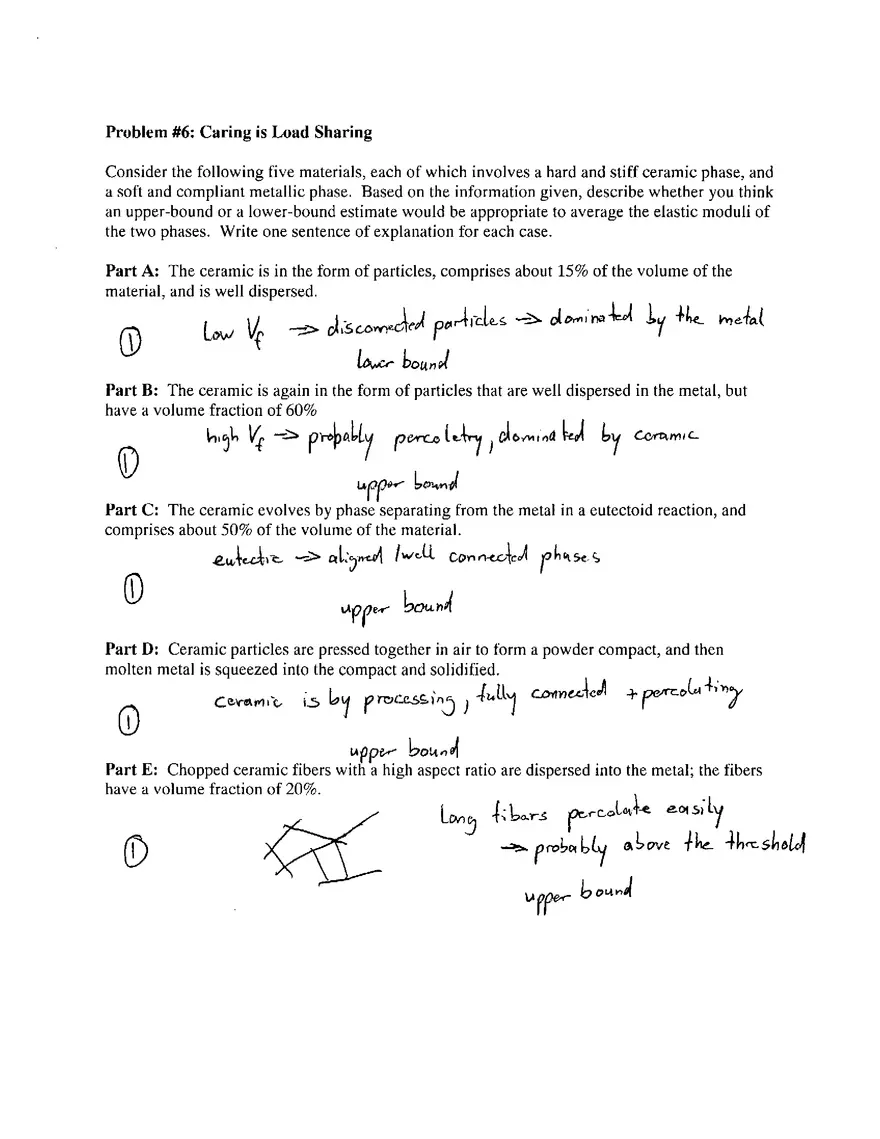 Problem #6: Caring is Load Sharing
Consider the following five materials, each of which involves a hard and stiff ceramic phase, and
a soft and compliant metallic phase. Based on the information given, describe whether you think
an upper-bound or a lower-bound estimate would be appropriate to average the elastic moduli of
the two phases. Write one sentence of explanation for each case.
Part A: The ceramic is in the form of particles, comprises about 15% of the volume of the
material, and is well dispersed.
① Low Vf ⇒ disconnected particles ⇒ dominated by the metal
lower bound
Part B: The ceramic is again in the form of particles that are well dispersed in the metal, but
have a volume fraction of 60%
high Vf ⇒ probably , dominated by ceramic
①
upper bound
Part C: The ceramic evolves by phase separating from the metal in a eutectoid reaction, and
comprises about 50% of the volume of the material.
eutectic ⇒ aligned / well connected phases
①
upper bound
Part D: Ceramic particles are pressed together in air to form a powder compact, and then
molten metal is squeezed into the compact and solidified.
ceramic is by processing, fully connected + percolating
①
upper bound
Part E: Chopped ceramic fibers with a high aspect ratio are dispersed into the metal; the fibers
have a volume fraction of 20%.
Long fibars percolate easily
① ⇒ probably above the threshold
upper bound